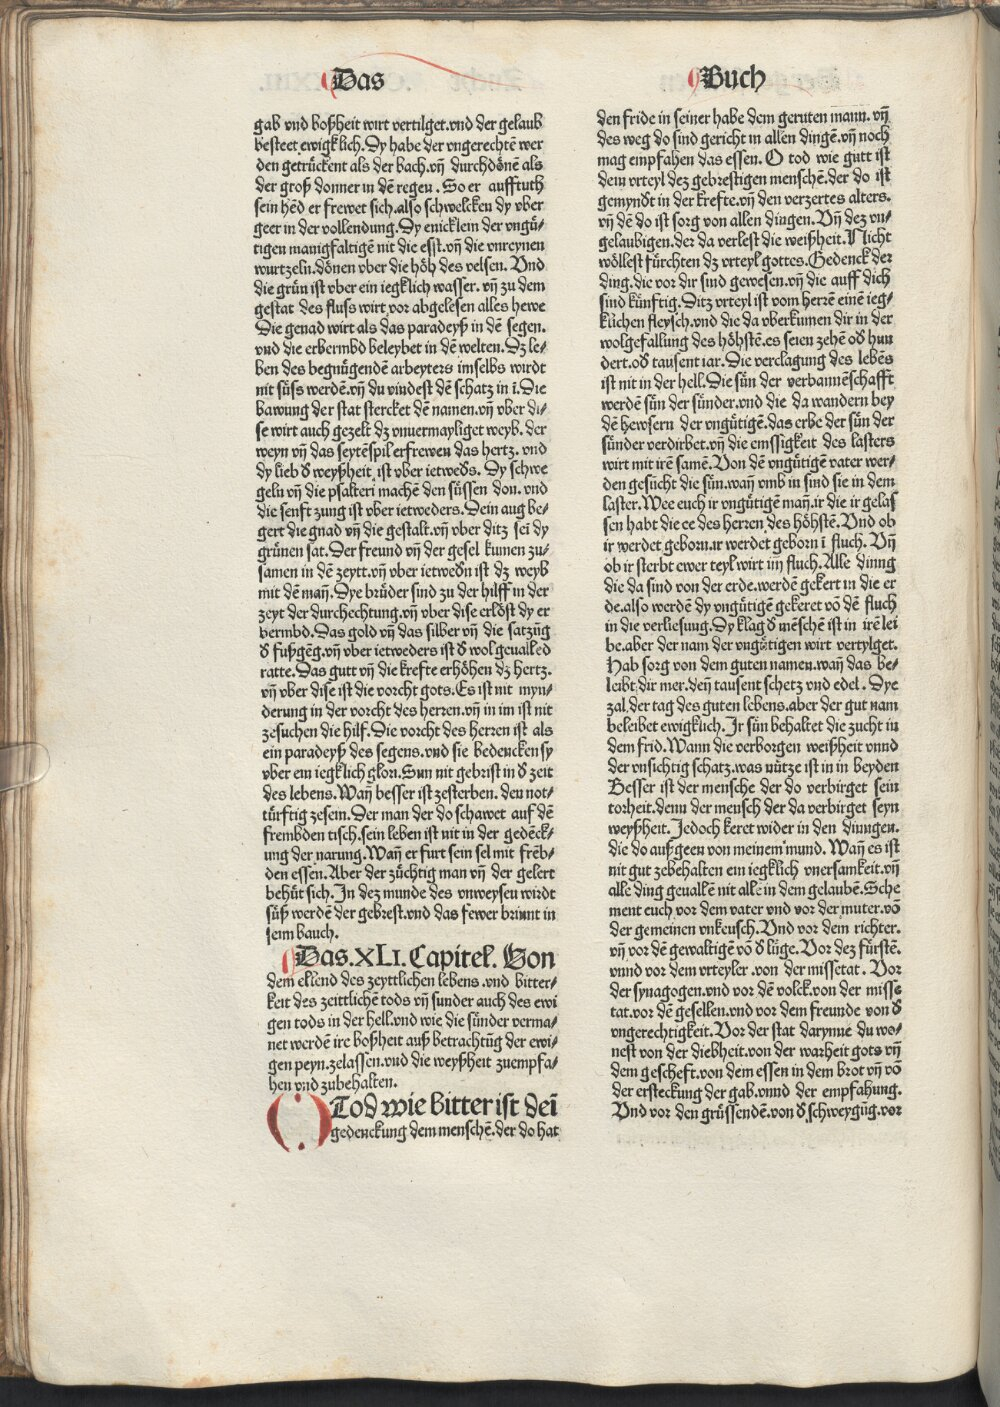 Das
Buch
gab vnd boßheit wirt vertilget.vnd der gelaub
besteet ewigklich. Dy habe der vngerechtē wer
den getrückent als der bach.vn̄ durchdönē als
der groß donner in dē regen. So er aufftuth
sein hēd er frewet sich.also schwelcken dy vber
geer in der vollendung. Dy enicklein der vngü⸗
tigen manigfaltigē nit die esst.vn̄ die vnreynen
wurtzeln.dönen vber die höh des velsen. Vnd
die grün ist vber ein iegklich wasser. vn̄ zu dem
gestat des fluss wirt vor abgelesen alles hewe
Die genad wirt als das paradeyß in dē segen.
vnd die erbermbd beleybet in dē welten. Dz le⸗
ben des begnügenden arbeyters imselbs wirdt
nit süss werdē.vn̄ du vindest dē schatz in ī. Die
bawung der stat stercket dē namen.vn̄ vber di⸗
se wirt auch gezelt dz vnuermayliget weyb. der
weyn vn̄ das seytēspil erfrewen das hertz. vnd
dy lieb đ weyßheit ist vber ietweđs. Dy schwe
geln vn̄ die psalteri machē den süssen don. vnd
die senft zung ist vber ietweders. Dein aug be⸗
gert die gnad vn̄ die gestalt.vn̄ vber ditz sei dy
grünen sat. Der freund vn̄ der gesel kumen zu⸗
samen in dē zeytt.vn̄ vber ietweđn ist dz weyb
mit dē man̄. Dye brüder sind zu der hilff in der
zeyt der durchechtung.vn̄ vber dise erlöst dy er
bermbd. Das gold vn̄ das silber vn̄ die satzūg
đ fußgēg.vn̄ vber ietweders ist đ wolgeualled
ratte. Das gutt vn̄ die krefte erhöhen dz hertz.
vn̄ vber dise ist die vorcht gots. Es ist nit myn⸗
derung in der vorcht des herren.vn̄ in im ist nit
zesuchen die hilf. Die vorcht des herren ist als
ein paradeyß des segens.vnd sie bedencken sy
vber ein iegklich glori. Sun nit gebrist in đ zeit
des lebens. Wan̄ besser ist zesterben. den not⸗
türftig zesein. Der man der do schawet auf dē
frembden tisch.sein leben ist nit in der gedēck⸗
ung der narung. Wan̄ er furt sein sel mit frēb⸗
den essen. Aber der züchtig man vn̄ der gelert
behüt sich. In dez munde des vnweysen wirdt
süß werden der gebrest.vnd das fewer brinnt in
seim bauch.
Das.XLI.Capitel. Von
dem ellend des zeyttlichen lebens.vnd bitter⸗
keit des zeittlichē tods vn̄ sunder auch des ewi
gen tods in der hell.vnd wie die sünder verma⸗
net werdē ire boßheit auß betrachtūg der ewi⸗
gen peyn.zelassen.vnd die weyßheit zuempfa⸗
hen vnd zubehalten.
O Tod wie bitter ist dei
gedenckung dem menschē.der do hat
den fride in seiner habe dem geruten mann. vn̄
des weg do sind gericht in allen dingē.vn̄ noch
mag empfahen das essen. O tod wie gutt ist
dem vrteyl dez gebrestigen menschē.der do ist
gemyndt in der krefte.vn̄ den verzertes alters.
vn̄ dē do ist sorg von allen dingen. Vn̄ dez vn⸗
gelaubigen.der da verlest die weißheit. Nicht
wöllest fürchten dz vrteyl gottes. Gedenck der
ding.die vor dir sind gewesen.vn̄ die auff dich
sind künftig. Ditz vrteyl ist vom herrē einē ieg⸗
klichen fleysch.vnd die da vberkumen dir in der
wolgefallung des höhstē.es seien zehē ođ hun
dert.ođ tausent iar. Die verclagung des lebēs
ist nit in der hell. Die sün der verbannēschafft
werdē sün der sünder.vnd die da wandern bey
dē hewsern der vngütigē.das erbe der sün der
sünder verdirbet.vn̄ die emssigkeit des lasters
wirt mit irē samē. Von dē vngütigē vater wer⸗
den gesücht die sün.wan̄ vmb in sind sie in dem
laster. Wee euch ir vngütigē man̄.ir die ir gelaſ
sen habt die ee des herren des höhstē. Vnd ob
ir werdet geborn.ir werdet geborn ī fluch. Vn̄
ob ir sterbt ewer teyl wirt im fluch. Alle dinng
die da sind von der erde.werdē gekert in die er
de.also werdē dy vngütigē gekeret vō dē fluch
in die verliesung. Dy klag đ mēschē ist in irē lei
be.aber der nam der vngütigen wirt vertylget.
Hab sorg von dem guten namen.wan̄ das be⸗
leibt dir mer.den̄ tausent schetz vnd edel. Dye
zal.der tag des guten lebens.aber der gut nam
beleibet ewigklich. Ir sün behaltet die zucht in
dem frid. Wann die verborgen weißheit vnnd
der vnsichtig schatz.was nütze ist in in beyden
Besser ist der mensche der do verbirget sein
torheit.denn der mensch der da verbirget seyn
weyßheit. Jedoch keret wider in den dinngen.
die do außgeen von meinem mund. Wan̄ es ist
nit gut zebehalten ein iegklich vnersamkeit.vn̄
alle ding geuallē nit allē in dem gelaubē. Sche
ment euch vor dem vater vnd vor der muter.vō
der gemeinen vnkeusch. Vnd vor dem richter.
vn̄ vor dē gewaltigē vō đ lüge. Vor dez fürstē.
vnnd vor dem vrteyler .von der missetat. Vor
der synagogen.vnd vor dē volck.von der misse
tat.vor dē gesellen.vnd vor dem freunde von đ
vngerechtigkeit. Vor der stat darynne du wo⸗
nest von der diebheit.von der warheit gots vn̄
dem gescheft.von dem essen in dem brot vn̄ vō
der ersteckung der gab.vnnd der empfahung.
Vnd vor den grüssendē.von đ schweygūg.vor